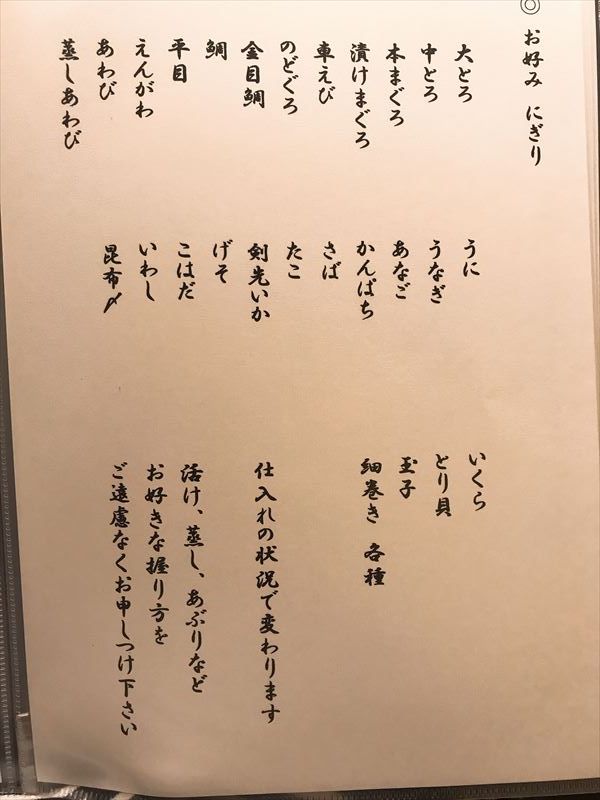 ◎ お好み にぎり
大とろ
中とろ
本まぐろ
漬けまぐろ
車えび
のどぐろ
金目鯛
鯛
平目
えんがわ
あわび
蒸しあわび
うに
うなぎ
あなご
かんぱち
さば
たこ
剣先いか
げそ
こはだ
いわし
昆布〆
いくら
とり貝
玉子
細巻き 各種
仕入れの状況で変わります
活け、蒸し、あぶりなど
お好きな握り方を
ご遠慮なくお申しつけ下さい